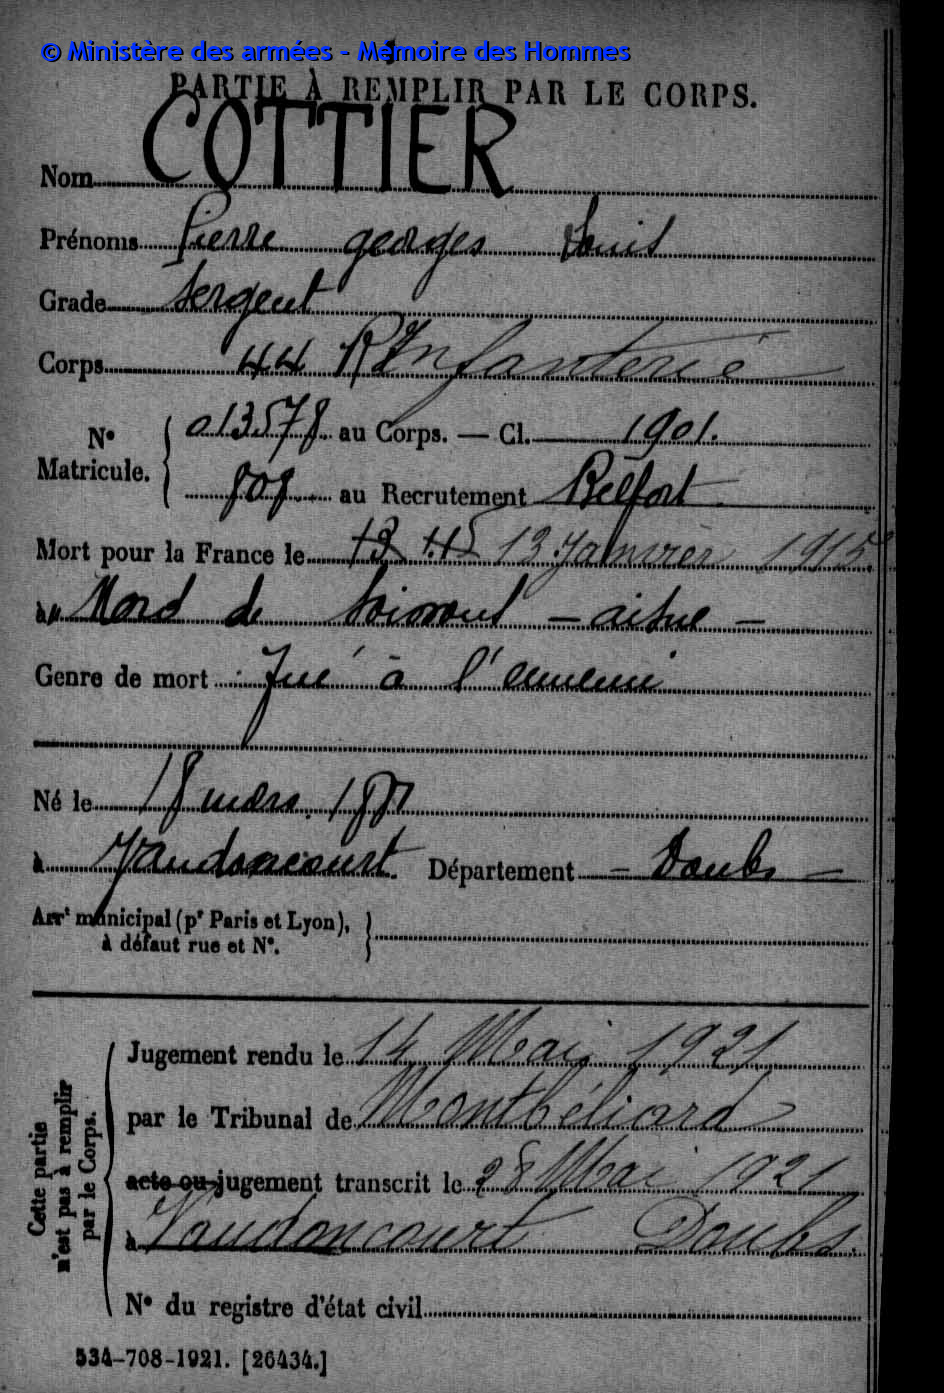 © Ministère des armées - Mémoire des Hommes
PARTIE À REMPLIR PAR LE CORPS.
Nom COTTIER
Prénoms Pierre georges Louis
Grade Sergent
Corps 44 R Infanterie
N° Matricule. 013578 au Corps. — Cl. 1901.
808 au Recrutement Belfort
Mort pour la France le 13 1.15 13 Janvier 1915
à Nord de Soissons — aisne —
Genre de mort Tué à l'ennemi
Né le 18 mars 1881
à Vandoncourt. Département — Doubs —
Arrt municipal (pr Paris et Lyon),
à défaut rue et N°.
Cette partie
n'est pas à remplir
par le Corps.
Jugement rendu le 14 Mai 1921
par le Tribunal de Montbéliard
acte ou jugement transcrit le 28 Mai 1921
à Vandoncourt Doubs.
N° du registre d'état civil
534-708-1921. [26434.]